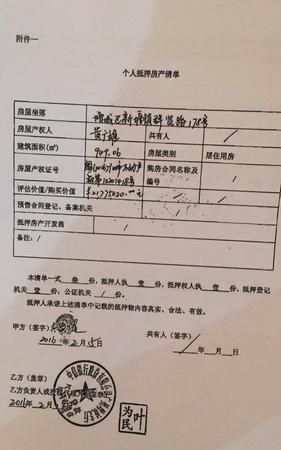 附件一
个人抵押房产清单
房屋坐落 增城区新塘镇群贤路178号
房屋产权人 黄广雄 共有人 /
建筑面积(㎡) 909.06 房屋类别 居住用房
房屋产权证号 购房合同名称及编号 /
评估价值/购买价值 /
预售合同登记、备案机关 /
抵押房产开发商 /
备注:/
本清单一式 叁 份,抵押人执 壹 份,抵押权人执 壹 份,抵押登记
机关 壹 份,公证机关 / 份。
抵押人承诺上述清单中记载的抵押物内容真实、合法、有效。
甲方(签字)
2016年2月15日
共有人(签字)
/ 年 / 月 / 日
乙方(盖章)
乙方负责人或授权代理人
2016年2月
叶为民